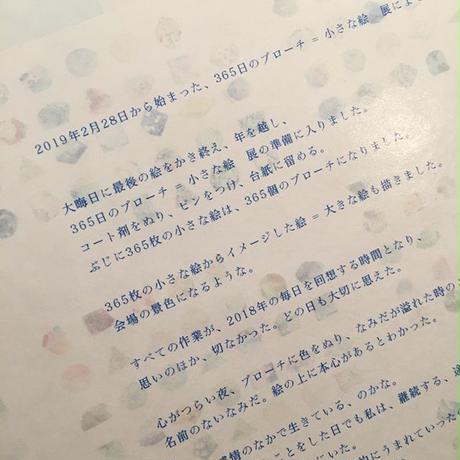 2019年2月28日から始まった、365日のブローチ = 小さな絵 展によ
大晦日に最後の絵をかき終え、年を越し、
365日のブローチ = 小さな絵 展の準備に入りました。
コート剤をぬり、ピンをつけ、台紙に留める。
ぶじに365枚の小さな絵は、365個のブローチになりました。
365枚の小さな絵からイメージした絵 = 大きな絵も描きました。
会場の景色になるような。
すべての作業が、2018年の毎日を回想する時間となり、
思いのほか、切なかった。どの日も大切に思えた。
心がつらい夜、ブローチに色をぬり、なみだが溢れた時の
名前のないなみだ。絵の上に本心があるとわかった。
感情のなかで生きている、のかな。
ことをした日でも私は、継続する、
にいた。
的にうまれていった